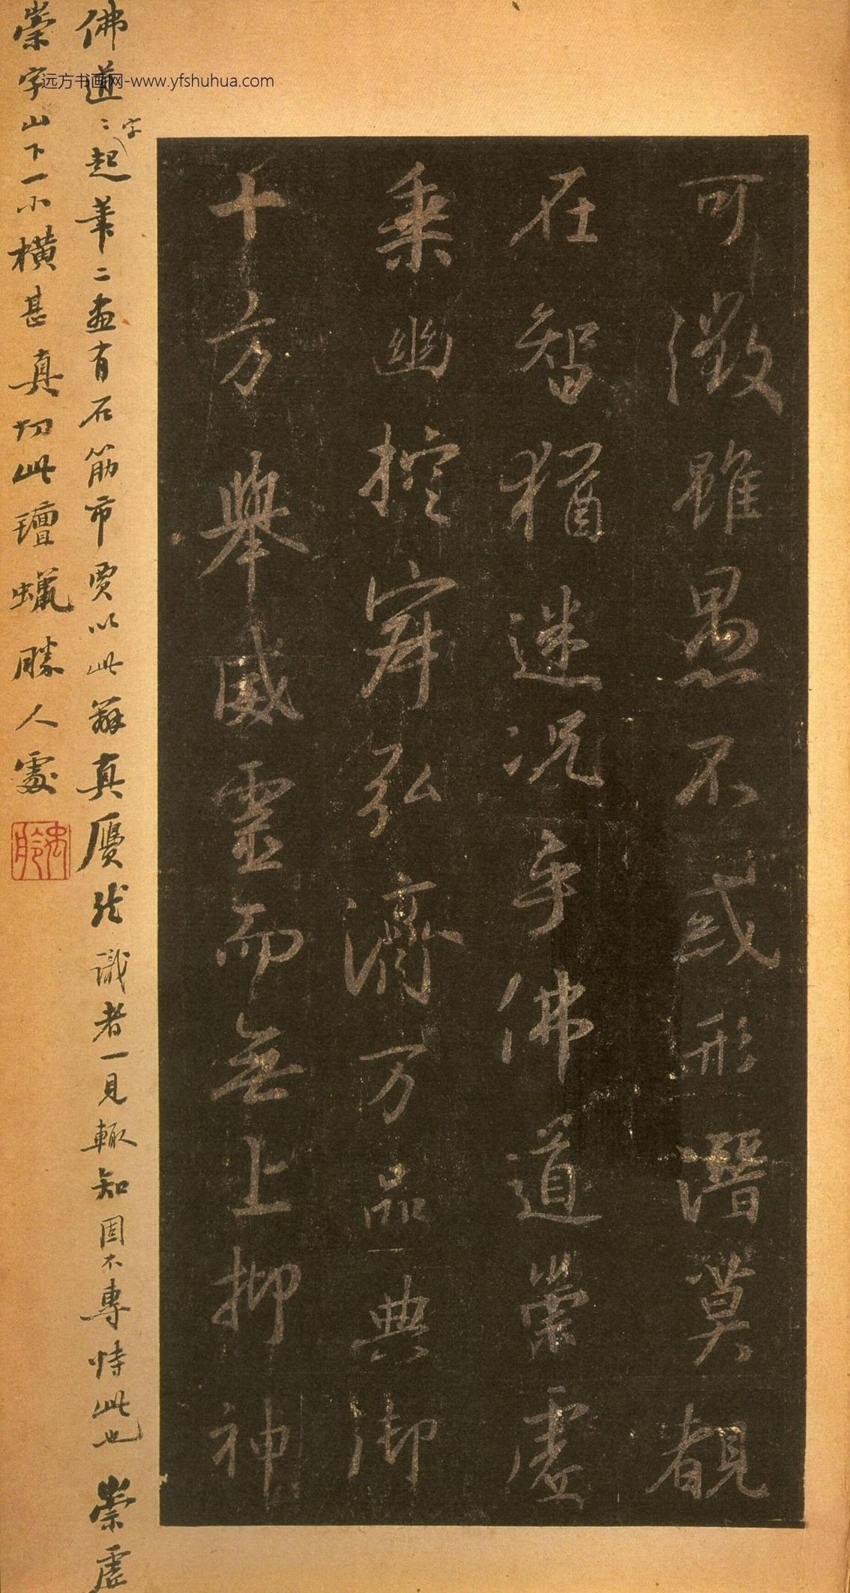 可徵雖愚不惑形潛莫覩
在智猶迷况乎佛道崇虛
乘幽控寂弘濟万品典御
十方舉威靈而無上抑神
佛道道字起筆二畫有石筋市賈以此辨真贋然識者一見輒知固不專恃此也 崇虛
崇字山下一小橫甚真切此氊蠟勝人處
远方书画网-www.yfshuhua.com